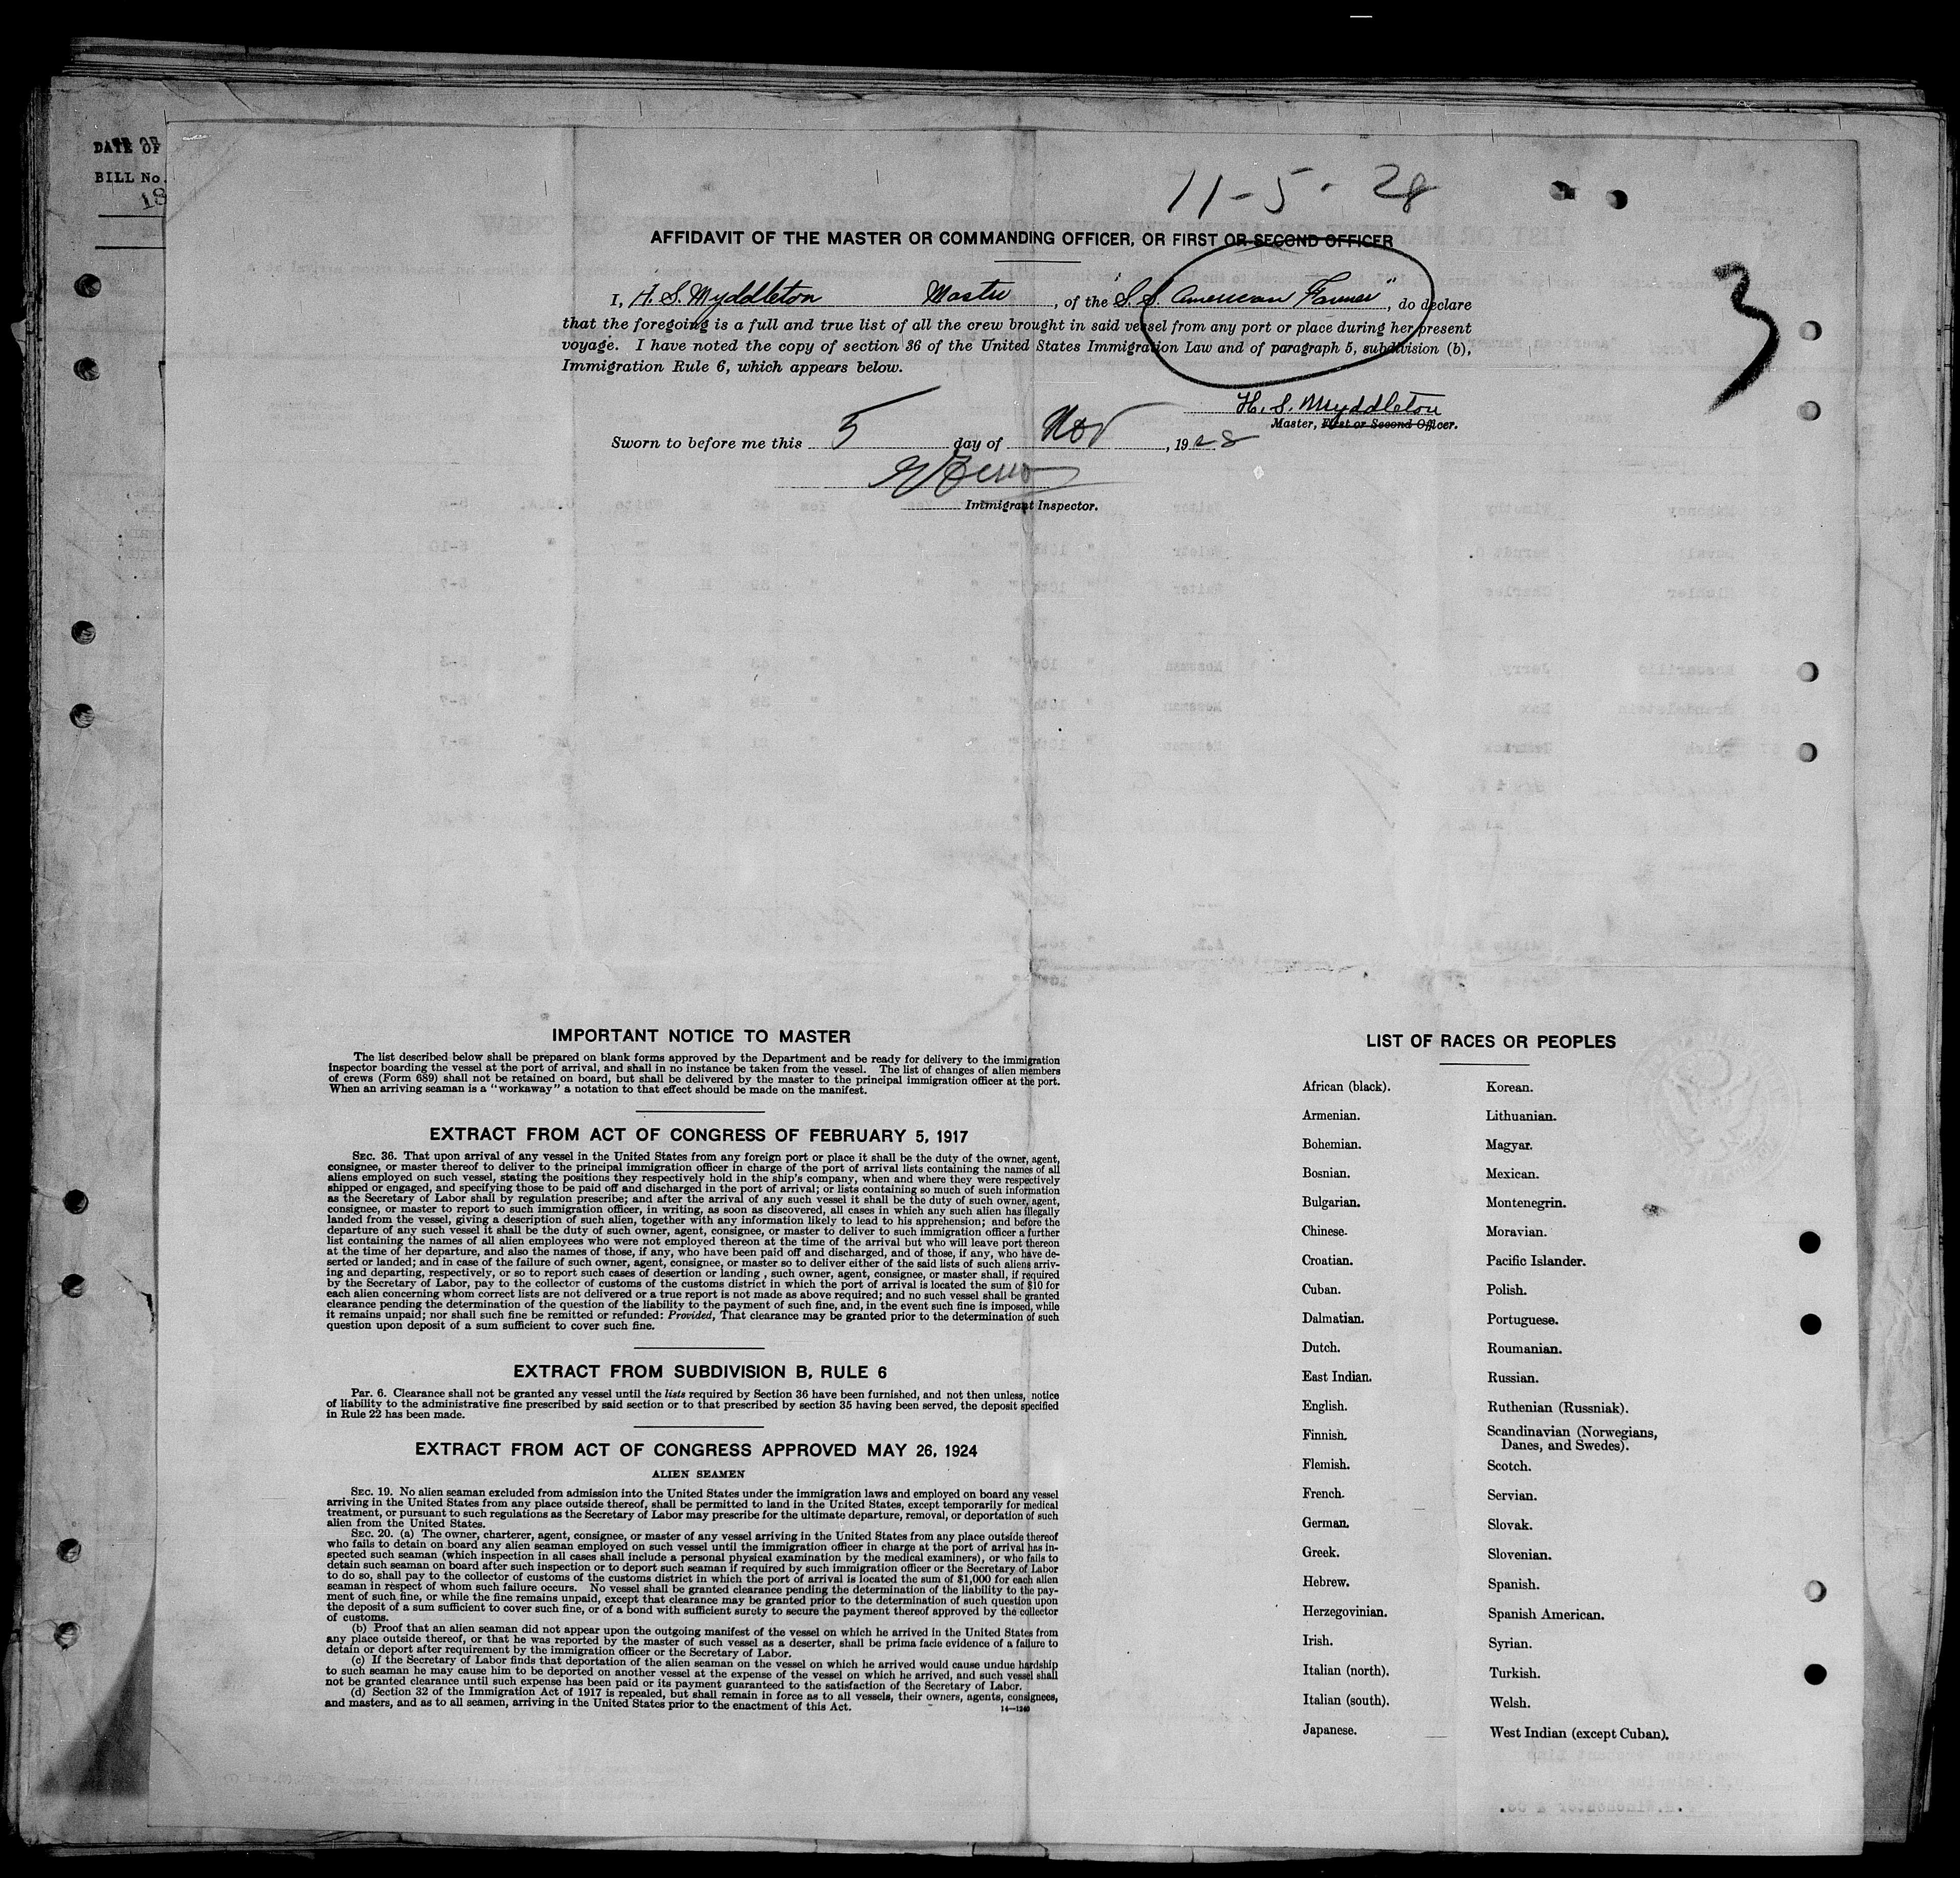 DATE OF
BILL No.
18
11-5-28
AFFIDAVIT OF THE MASTER OR COMMANDING OFFICER, OR FIRST OR SECOND OFFICER
I, H. S. Myddleton Master, of the "S.S. American Farmer", do declare
that the foregoing is a full and true list of all the crew brought in said vessel from any port or place during her present
voyage. I have noted the copy of section 36 of the United States Immigration Law and of paragraph 5, subdivision (b),
Immigration Rule 6, which appears below.
3
H. S. Myddleton
Master, First or Second Officer.
Sworn to before me this 5 day of Nov, 1928
Immigrant Inspector.
IMPORTANT NOTICE TO MASTER
The list described below shall be prepared on blank forms approved by the Department and be ready for delivery to the immigration
inspector boarding the vessel at the port of arrival, and shall in no instance be taken from the vessel. The list of changes of alien members
of crews (Form 689) shall not be retained on board, but shall be delivered by the master to the principal immigration officer at the port.
When an arriving seaman is a "workaway" a notation to that effect should be made on the manifest.
EXTRACT FROM ACT OF CONGRESS OF FEBRUARY 5, 1917
SEC. 36. That upon arrival of any vessel in the United States from any foreign port or place it shall be the duty of the owner, agent,
consignee, or master thereof to deliver to the principal immigration officer in charge of the port of arrival lists containing the names of all
aliens employed on such vessel, stating the positions they respectively hold in the ship's company, when and where they were respectively
shipped or engaged, and specifying those to be paid off and discharged in the port of arrival; or lists containing so much of such information
as the Secretary of Labor shall by regulation prescribe; and after the arrival of any such vessel it shall be the duty of such owner, agent,
consignee, or master to report to such immigration officer, in writing, as soon as discovered, all cases in which any such alien has illegally
landed from the vessel, giving a description of such alien, together with any information likely to lead to his apprehension; and before the
departure of any such vessel it shall be the duty of such owner, agent, consignee, or master to deliver to such immigration officer a further
list containing the names of all alien employees who were not employed thereon at the time of the arrival but who will leave port thereon
at the time of her departure, and also the names of those, if any, who have been paid off and discharged, and of those, if any, who have de-
serted or landed; and in case of the failure of such owner, agent, consignee, or master so to deliver either of the said lists of such aliens arriv-
ing and departing, respectively, or so to report such cases of desertion or landing , such owner, agent, consignee, or master shall, if required
by the Secretary of Labor, pay to the collector of customs of the customs district in which the port of arrival is located the sum of $10 for
each alien concerning whom correct lists are not delivered or a true report is not made as above required; and no such vessel shall be granted
clearance pending the determination of the question of the liability to the payment of such fine, and, in the event such fine is imposed, while
it remains unpaid; nor shall such fine be remitted or refunded: Provided, That clearance may be granted prior to the determination of such
question upon deposit of a sum sufficient to cover such fine.
EXTRACT FROM SUBDIVISION B, RULE 6
Par. 6. Clearance shall not be granted any vessel until the lists required by Section 36 have been furnished, and not then unless, notice
of liability to the administrative fine prescribed by said section or to that prescribed by section 35 having been served, the deposit specified
in Rule 22 has been made.
EXTRACT FROM ACT OF CONGRESS APPROVED MAY 26, 1924
ALIEN SEAMEN
SEC. 19. No alien seaman excluded from admission into the United States under the immigration laws and employed on board any vessel
arriving in the United States from any place outside thereof, shall be permitted to land in the United States, except temporarily for medical
treatment, or pursuant to such regulations as the Secretary of Labor may prescribe for the ultimate departure, removal, or deportation of such
alien from the United States.
SEC. 20. (a) The owner, charterer, agent, consignee, or master of any vessel arriving in the United States from any place outside thereof
who fails to detain on board any alien seaman employed on such vessel until the immigration officer in charge at the port of arrival has in-
spected such seaman (which inspection in all cases shall include a personal physical examination by the medical examiners), or who fails to
detain such seaman on board after such inspection or to deport such seaman if required by such immigration officer or the Secretary of Labor
to do so, shall pay to the collector of customs of the customs district in which the port of arrival is located the sum of $1,000 for each alien
seaman in respect of whom such failure occurs. No vessel shall be granted clearance pending the determination of the liability to the pay-
ment of such fine, or while the fine remains unpaid, except that clearance may be granted prior to the determination of such question upon
the deposit of a sum sufficient to cover such fine, or of a bond with sufficient surety to secure the payment thereof approved by the collector
of customs.
(b) Proof that an alien seaman did not appear upon the outgoing manifest of the vessel on which he arrived in the United States from
any place outside thereof, or that he was reported by the master of such vessel as a deserter, shall be prima facie evidence of a failure to
detain or deport after requirement by the immigration officer or the Secretary of Labor.
(c) If the Secretary of Labor finds that deportation of the alien seaman on the vessel on which he arrived would cause undue hardship
to such seaman he may cause him to be deported on another vessel at the expense of the vessel on which he arrived, and such vessel shall
not be granted clearance until such expense has been paid or its payment guaranteed to the satisfaction of the Secretary of Labor.
(d) Section 32 of the Immigration Act of 1917 is repealed, but shall remain in force as to all vessels, their owners, agents, consignees,
and masters, and as to all seamen, arriving in the United States prior to the enactment of this Act.
14—1240
LIST OF RACES OR PEOPLES
African (black). Korean.
Armenian. Lithuanian.
Bohemian. Magyar.
Bosnian. Mexican.
Bulgarian. Montenegrin.
Chinese. Moravian.
Croatian. Pacific Islander.
Cuban. Polish.
Dalmatian. Portuguese.
Dutch. Roumanian.
East Indian. Russian.
English. Ruthenian (Russniak).
Finnish. Scandinavian (Norwegians,
Danes, and Swedes).
Flemish. Scotch.
French. Servian.
German. Slovak.
Greek. Slovenian.
Hebrew. Spanish.
Herzegovinian. Spanish American.
Irish. Syrian.
Italian (north). Turkish.
Italian (south). Welsh.
Japanese. West Indian (except Cuban).